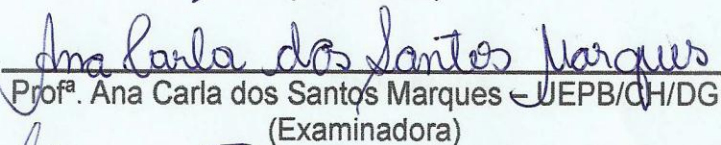 Ana Carla dos Santos Marques
Profª. Ana Carla dos Santos Marques – UEPB/CH/DG
(Examinadora)